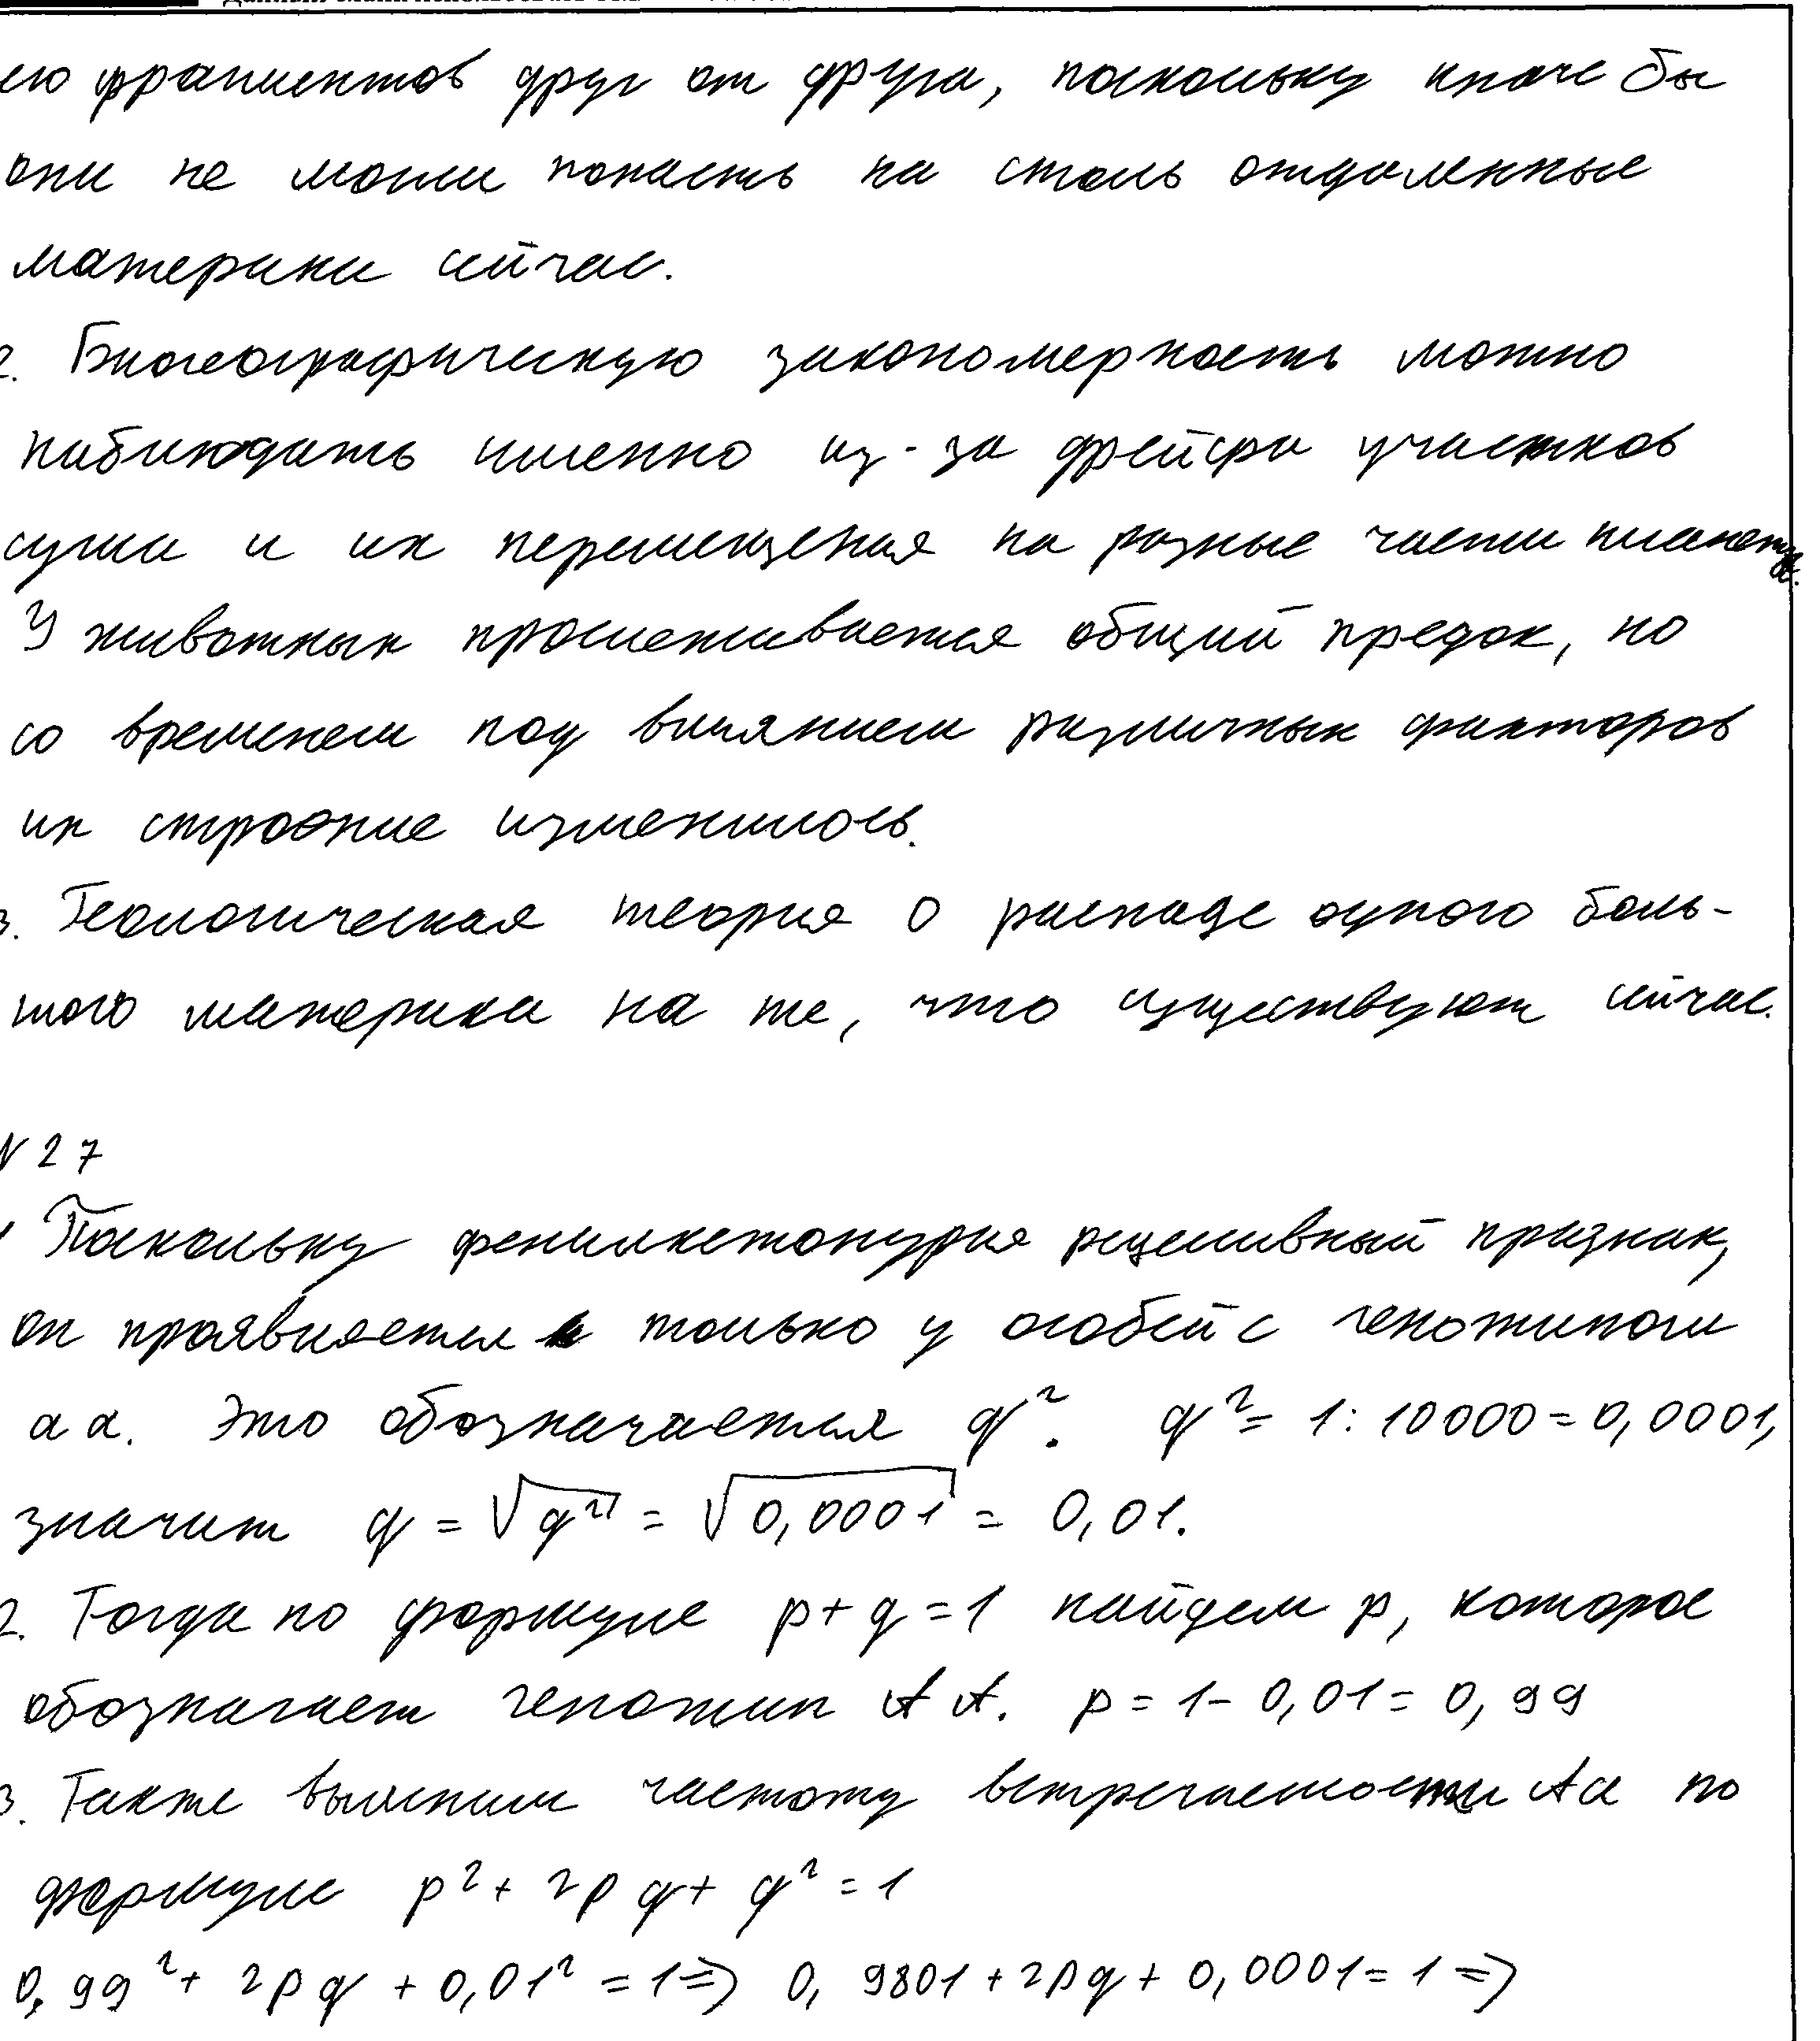 его фрагментов друг от друга, поскольку иначе бы
они не могли попасть на столь отдаленные
материки сейчас.
2. Биогеографическую закономерность можно
наблюдать именно из-за дрейфа участков
суши и их перемещения на разные части планеты.
У животных прослеживается общий предок, но
со временем под влиянием различных факторов
их строение изменилось.
3. Геологическая теория о распаде одного боль-
шого материка на те, что существуют сейчас.
N 27
Поскольку фенилкетонурия рецессивный признак,
он проявляется только у особей с генотипом
аа. Это обозначается q². q² = 1 : 10000 = 0,0001,
значит q = √q² = √0,0001 = 0,01.
2. Тогда по формуле p + q = 1 найдем p, которое
обозначает генотип АА. p = 1 - 0,01 = 0,99
3. Также выясним частоту встречаемости Аа по
формуле p² + 2pq + q² = 1
0,99² + 2pq + 0,01² = 1 => 0,9801 + 2pq + 0,0001 = 1 =>